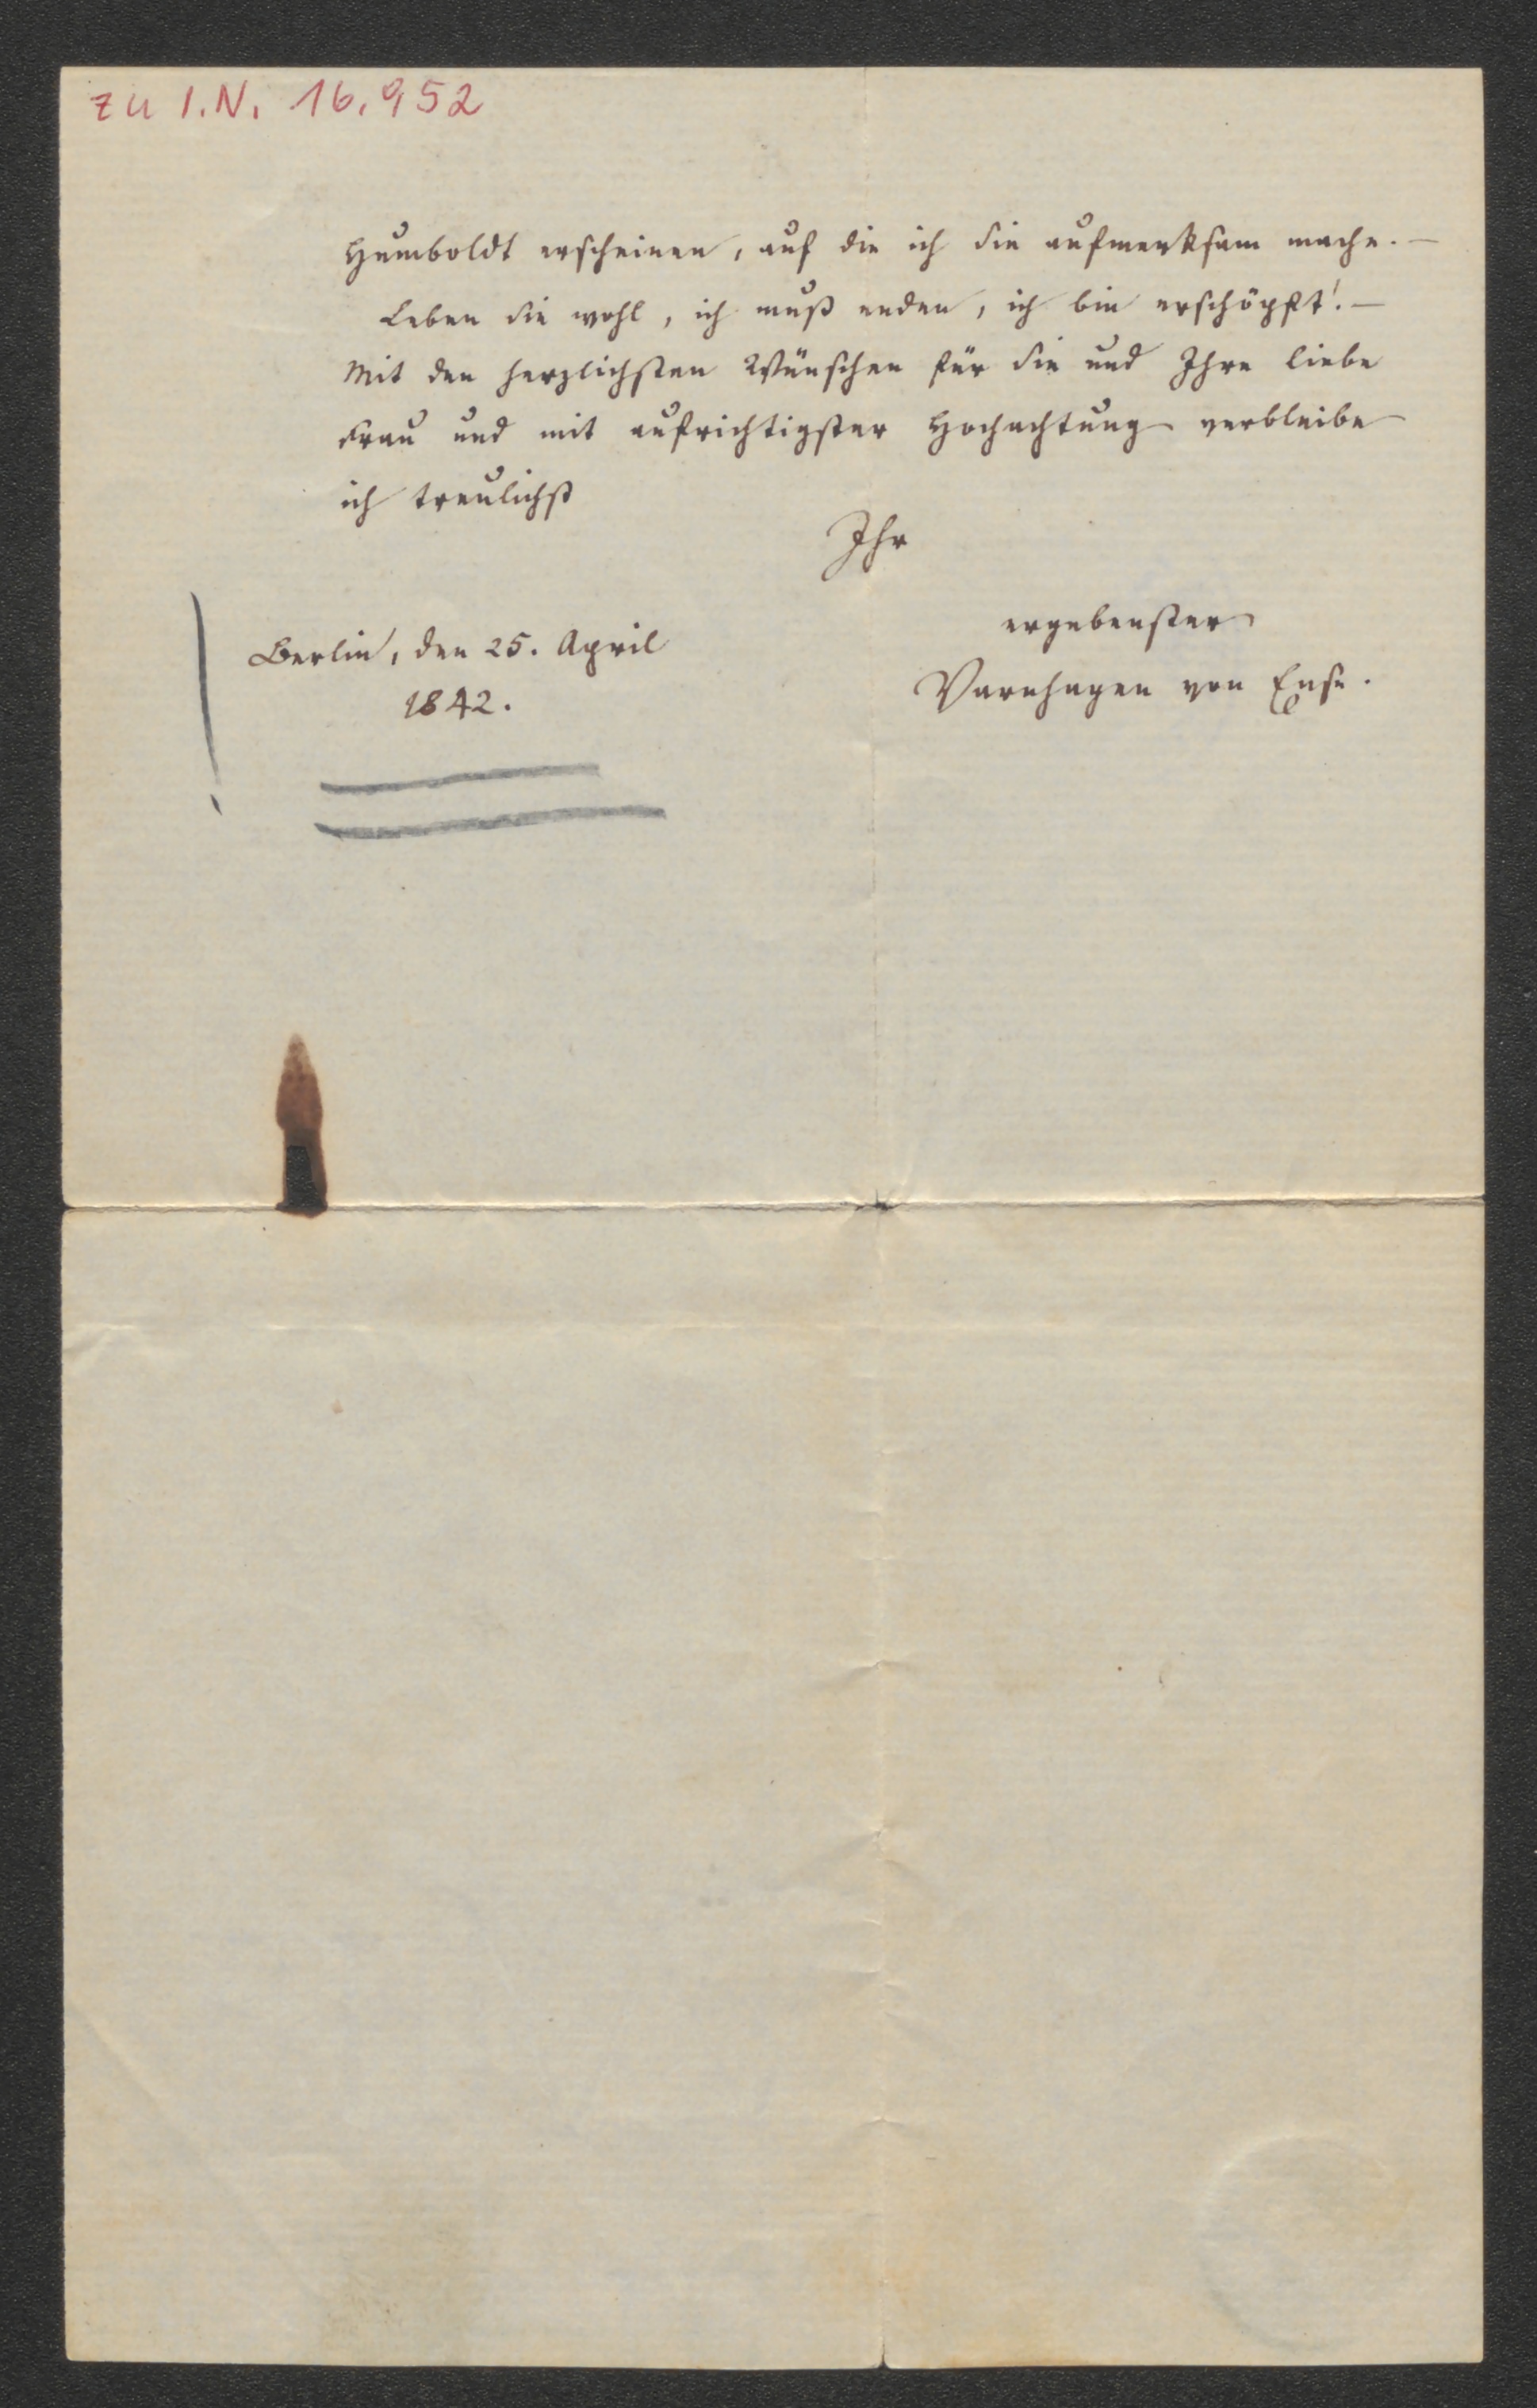 zu I.N. 16.952
Humboldt erscheinen, auf die ich Sie aufmerksam mache. —
Leben Sie wohl, ich muß enden, ich bin erschöpft! —
Mit den herzlichsten Wünschen für Sie und Ihre liebe
Frau und mit aufrichtigster Hochachtung verbleibe
ich treulichst
Ihr
ergebenster
Berlin, den 25. April
1842.
Varnhagen von Ense.